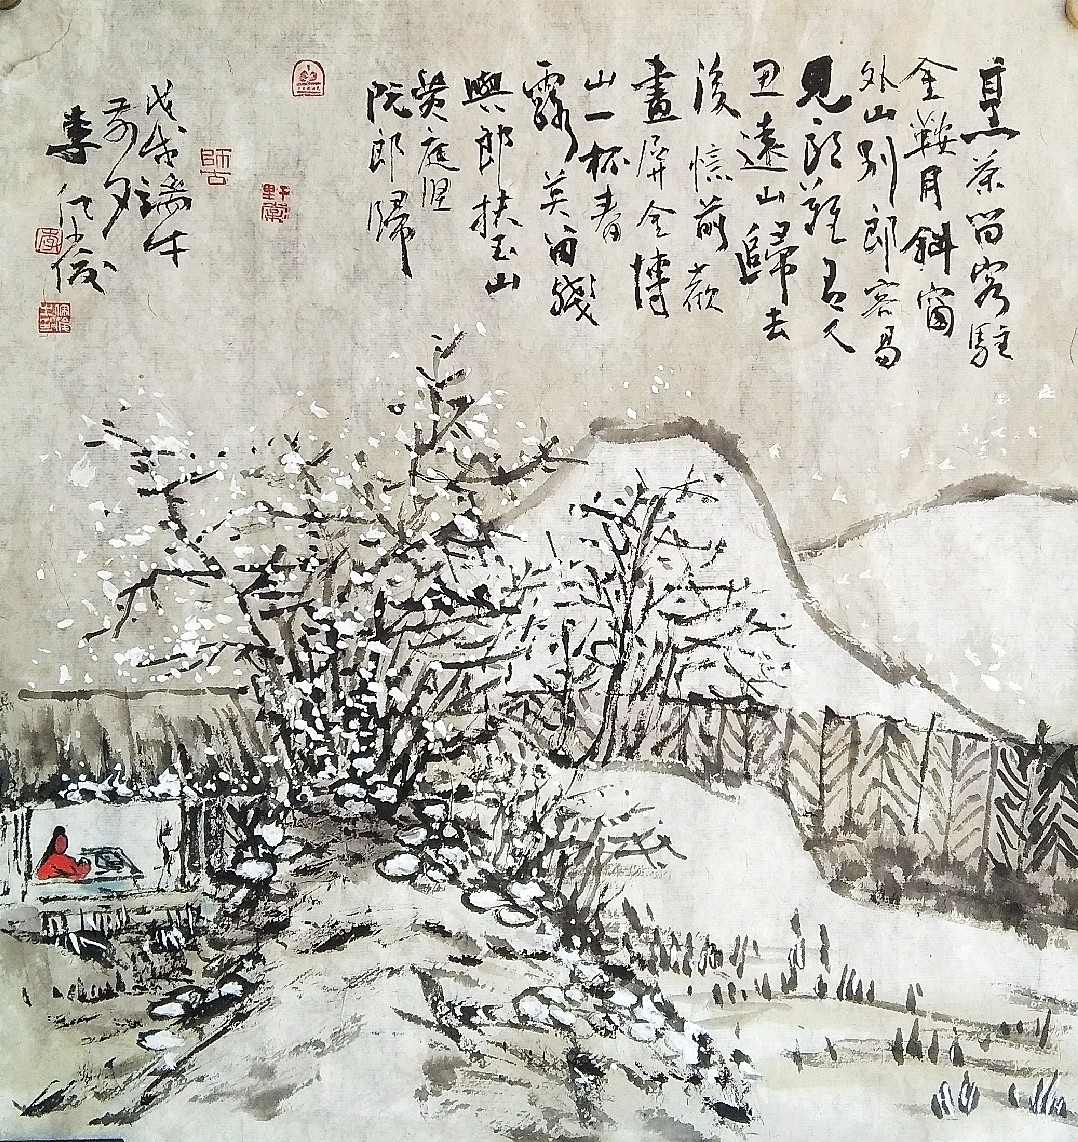 烹茶留客駐
金鞍月斜窗
外山别郎容易
見郎難有人
思遠山歸去
後憶前歡
畫屏金博
山一杯春
露莫留殘
與郎扶玉山
黄庭堅
阮郎歸
戊戌端午
前夕
李
師古